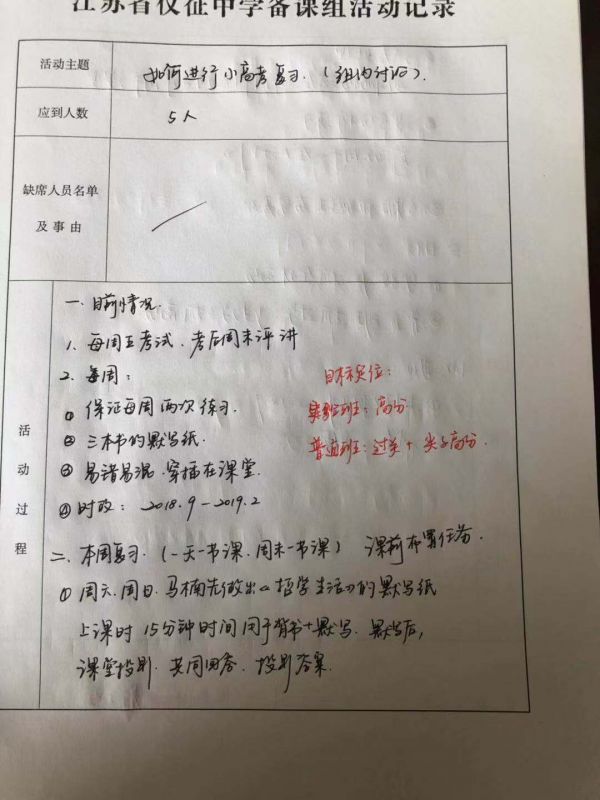 江苏省仪征中学备课组活动记录
活动主题
如何进行小高考复习.(组内讨论).
应到人数
5人
缺席人员名单
及事由
活动过程
一.目前情况.
1. 每周五考试.考后周末评讲
2. 每周:
① 保证每周两次练习.
② 三本书的默写纸.
③ 易错易混.穿插在课堂.
④ 时政: 2018.9-2019.2
目标定位:
实验班:高分.
普通班:过关+尖子高分.
二.本周复习.(一天一节课.周末一节课) 课前布置任务.
① 周六.周日.马楠先做出《哲学生活》的默写纸
上课时15分钟时间用于背书+默写.默写后,
课堂投影.共同回答.投影答案.